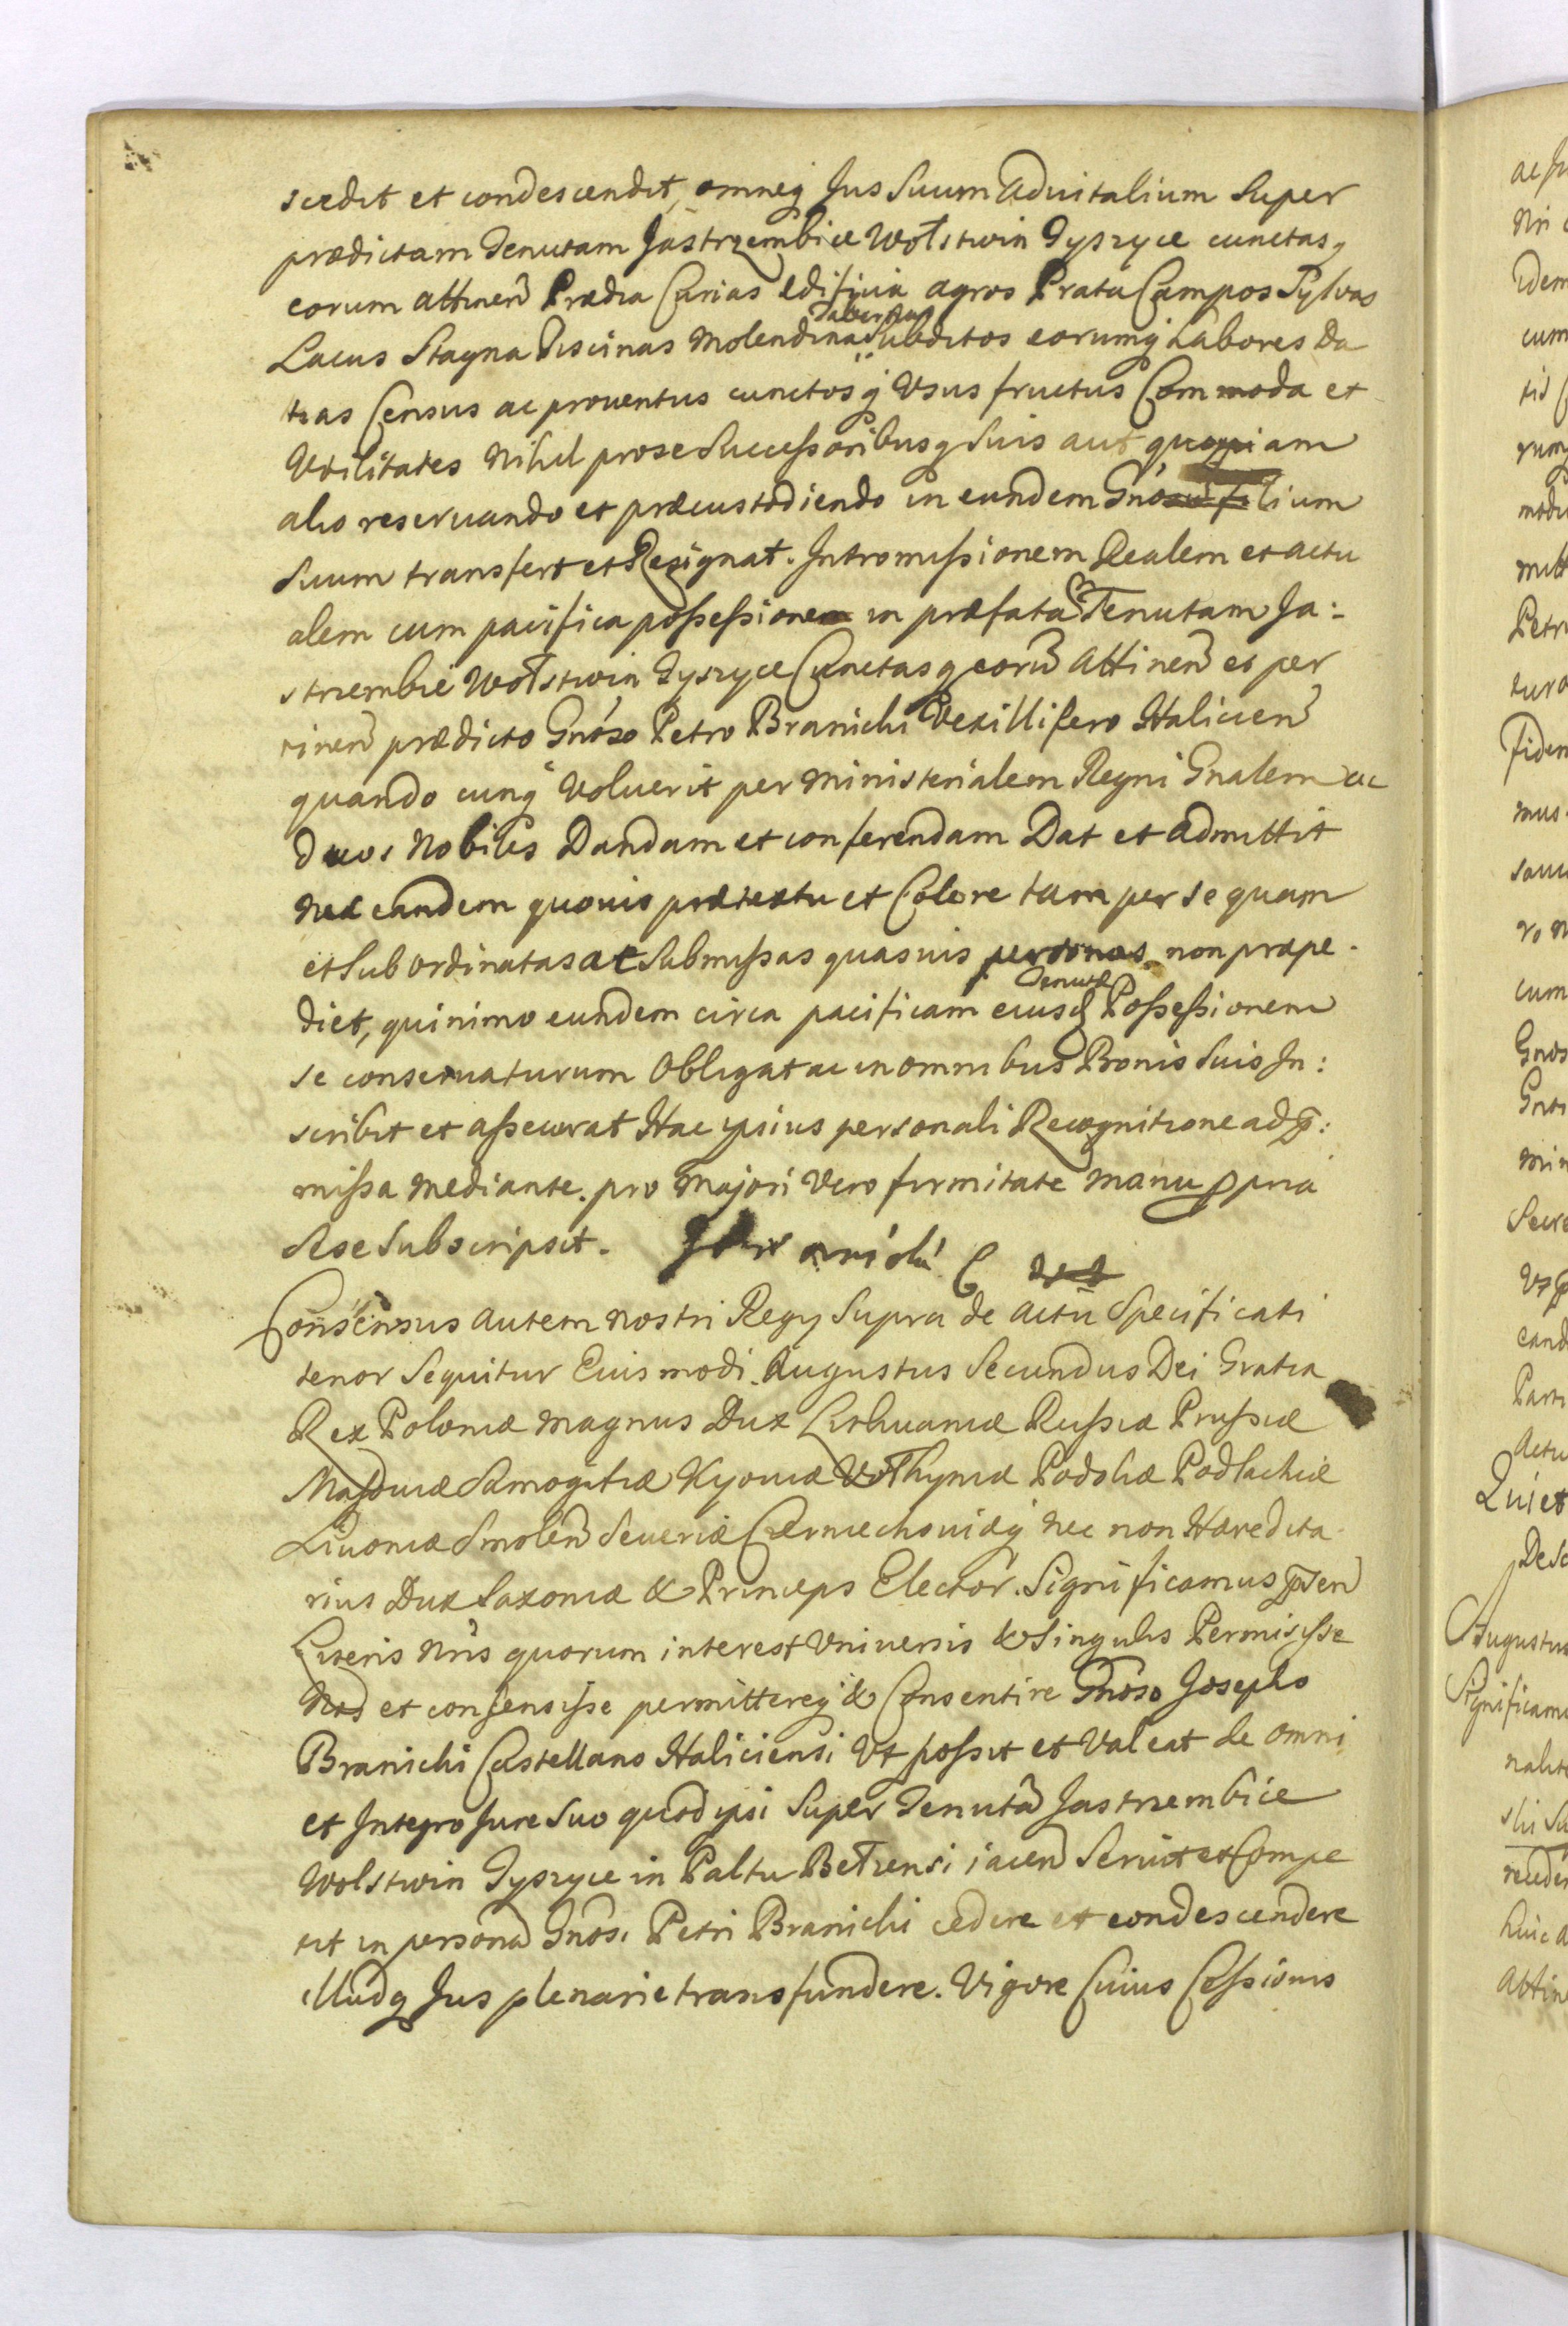 scedit et condescendit, omneq Jus Suum Advitalium Super
prædictam Tenutam Jastrzembice Wołstwin Tyszyce cunctasq
eorum attinen Prædia Curias edificia agros Prata Campos Sylvas
Tabernas
Lacus Stagna Piscinas Molendina Subditos eorumq Labores Da
tias Census ac proventus cunctosq Usus fructus Commoda et
Utilitates Nihil pro se Successoribusq Suis aut quopiam
alio reservando et præcustodiendo in eundem Gnosum filium
Suum transfert et Resignat. Intromissionem Realem et actu
alem cum pacifica possessione in præfatam Tenutam Ja:
strzembie Wołstwin Tyszyce Cunctasq eorũ Attinen et per
tinen prædicto Gnoso Petro Branicki Vexillifero Halicien
quando cunq Voluerit per Ministerialem Regni Gnalem ac
duos Nobiles Dandam et conferendam Dat et admittit
nec eandem quovis prætextu et Colore tam per se quam
et Subordinatas ac Submissas quasvis personas non præpe.
Tenutæ
diet, quinimo eundem circa pacificam eiusd Possessionem
se conservaturum Obligat ac in omnibus Bonis Suis In:
scribit et assecurat Hac ipsius personali Recognitione ad p:
missa Mediante. pro Majori Vero firmitate Manu ppria
Se se Subscripsit.
Consensus autem nostri Regy Supra de actu Specificati
tenor Sequitur Eiusmodi. Augustus Secundus Dei Gratia
Rex Poloniæ Magnus Dux Lithuaniæ Russiæ Prussiæ
Masoviæ Samogitiæ Kyoviæ Vołhyniæ Podoliæ Podlachiæ
Livoniæ Smolen Severiæ Czerniechoviæq Nec non Hæredita
rius Dux Saxoniæ & Princeps Elector. Significamus psen
Literis Nris quorum interest Universis & Singulis Permisisse
Nos et consensisse permittereq & Consentire Gnoso Josepho
Branicki Castellano Haliciensi Ut possit et Valeat de omni
et Integro Jure Suo quod ipsi Super Tenutã Jastrzembice
Wolstwin Tyszyce in Paltu Bełzensi iacen Servit et Compe
tit in personã Gnosi Petri Branicki cedere et condescendere
illudq Jus plenarie transfundere. Vigore Cuius Cessionis